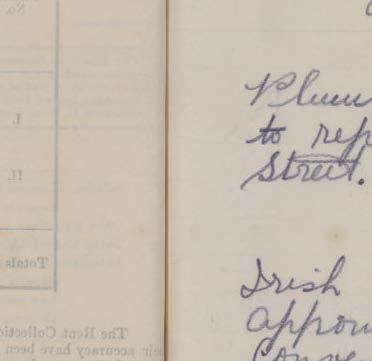 No.
I.
II.
Totals
The Rent Collectio
eir accuracy have been
Plum
to rep
Street.
Irish
appoin
Conve